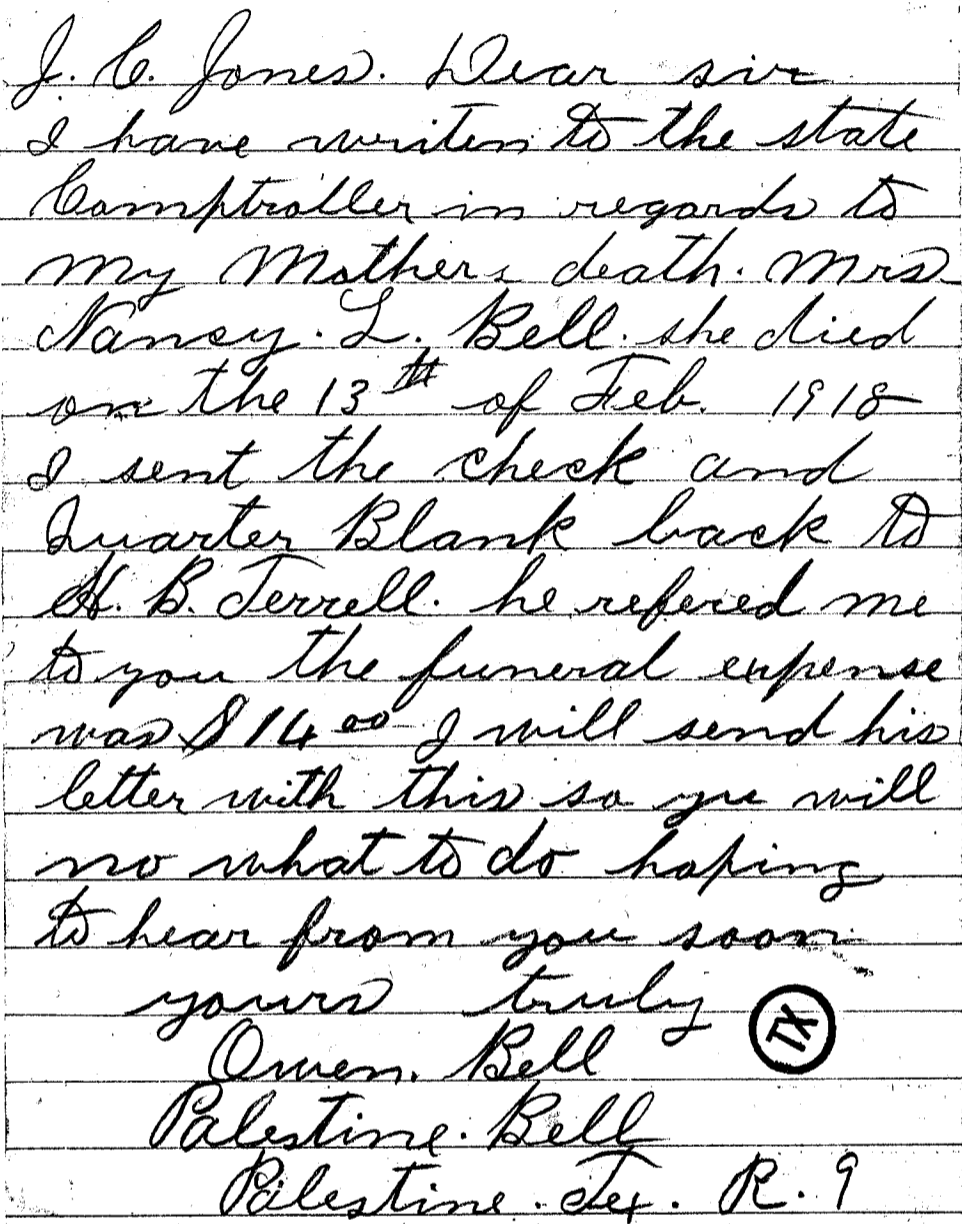 J. C. Jones. Dear sir
I have writen to the state
Comptroller in regards to
my Mothers death. Mrs
Nancy. L. Bell. she died
on the 13th of Feb. 1918
I sent the check and
Quarter Blank back to
H. B. Terrell. he refered me
to you the funeral expense
was $14 00 I will send his
letter with this so yu will
no what to do hoping
to hear from you soon
yours truly
TX
Owen. Bell
Palestine. Bell
Palestine. Tex. R. 9